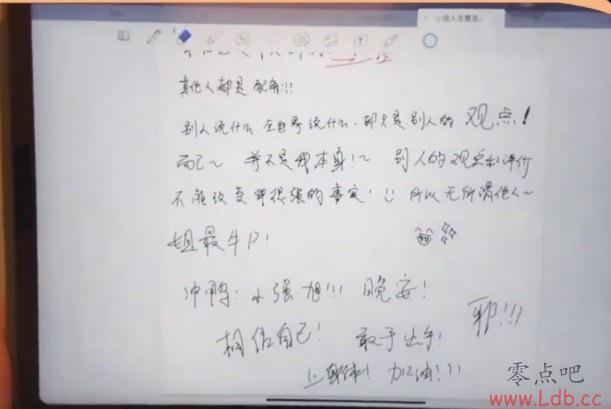 小恒人生复盘…
其他人都是配角!!!
别人说什么 全世界说什么,都只是别人的 观点!
而已~ 并不是我本身!~ 别人的观点和评价
不能改变我很强的事实! 所以无所谓他人~
姐最牛P!
冲鸭! 小强旭!!! 晚安!
耶!!!
相信自己! 敢于出手!
加油!
零点吧
www.Ldb.cc